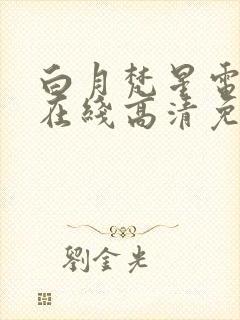 白月梵星電
在綫高清免
劉金光